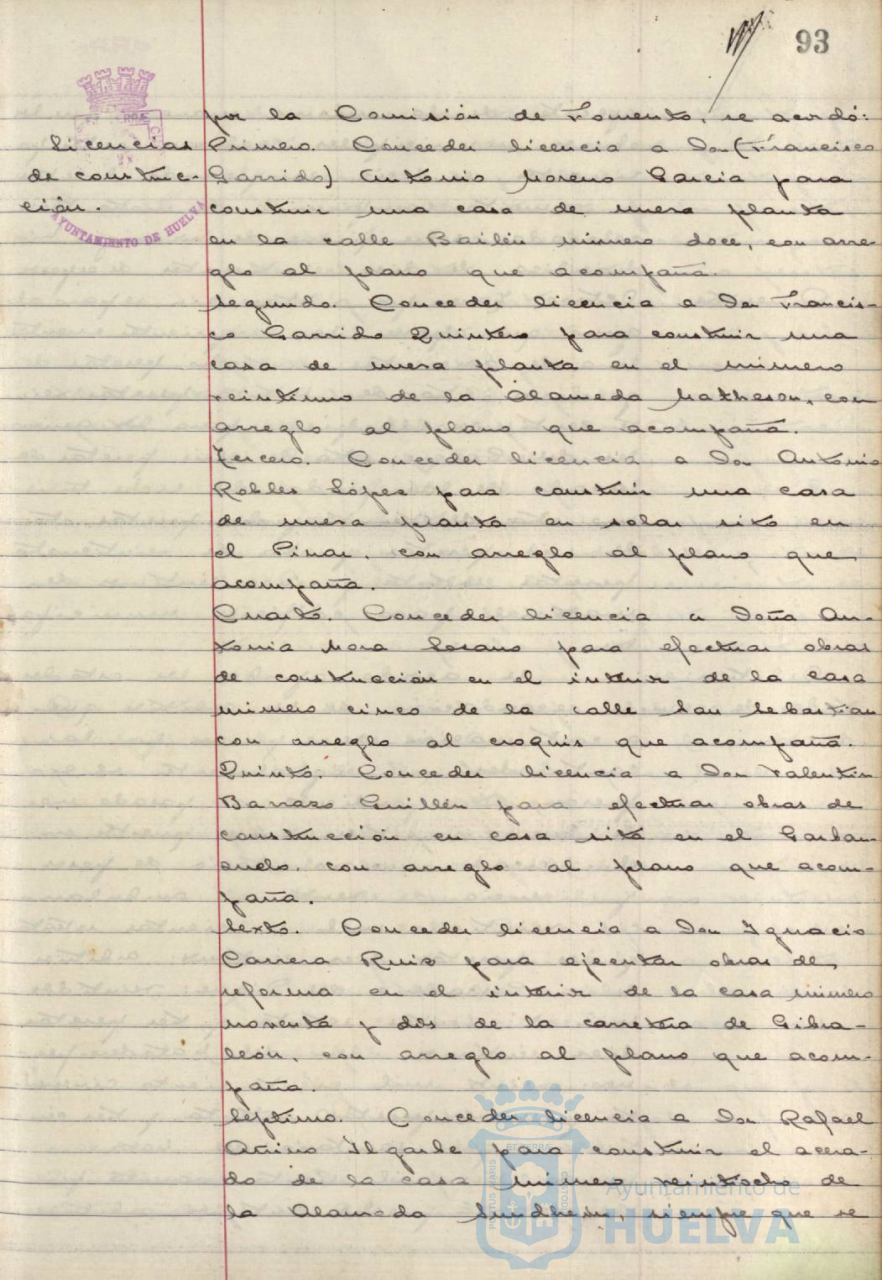 93
por la Comisión de Fomento, se acordó:
licencias
de construc-
ción.
AYUNTAMIENTO DE HUELVA
Primero. Conceder licencia a Don (Francisco
Garrido) Antonio Moreno García para
construir una casa de nueva planta
en la calle Bailén número doce, con arre-
glo al plano que acompaña.
Segundo. Conceder licencia a Don Francis-
co Garrido Quintero para construir una
casa de nueva planta en el número
veintiuno de la Alameda Matheson, con
arreglo al plano que acompaña.
Tercero. Conceder licencia a Don Antonio
Robles López para construir una casa
de nueva planta en solar sito en
el Pinar, con arreglo al plano que
acompaña.
Cuarto. Conceder licencia a Doña An-
tonia Mora Losano para efectuar obras
de construcción en el interior de la casa
número cinco de la calle San Sebastián
con arreglo al croquis que acompaña.
Quinto. Conceder licencia a Don Valentín
Barraso Guillén para efectuar obras de
construcción en casa sita en el
con arreglo al plano que acom-
paña.
Sexto. Conceder licencia a Don Ignacio
Carrera Ruiz para ejecutar obras de
reforma en el interior de la casa número
noventa y dos de la carretera de Gibra-
león, con arreglo al plano que acom-
paña.
Séptimo. Conceder licencia a Don Rafael
para construir el acera-
do de la casa número veintiocho de
la Alameda Sundheim, siempre que se
Ayuntamiento de
HUELVA